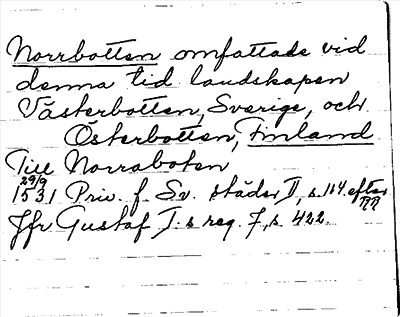 Norrbotten omfattade vid
denna tid landskapen
Västerbotten, Sverige, och
Österbotten, Finland
Till Norraboten
29/9
1531 Priv. f. Sv. städer II, s. 114. efter
RR
Jfr Gustaf I:s reg. 7, s. 422.